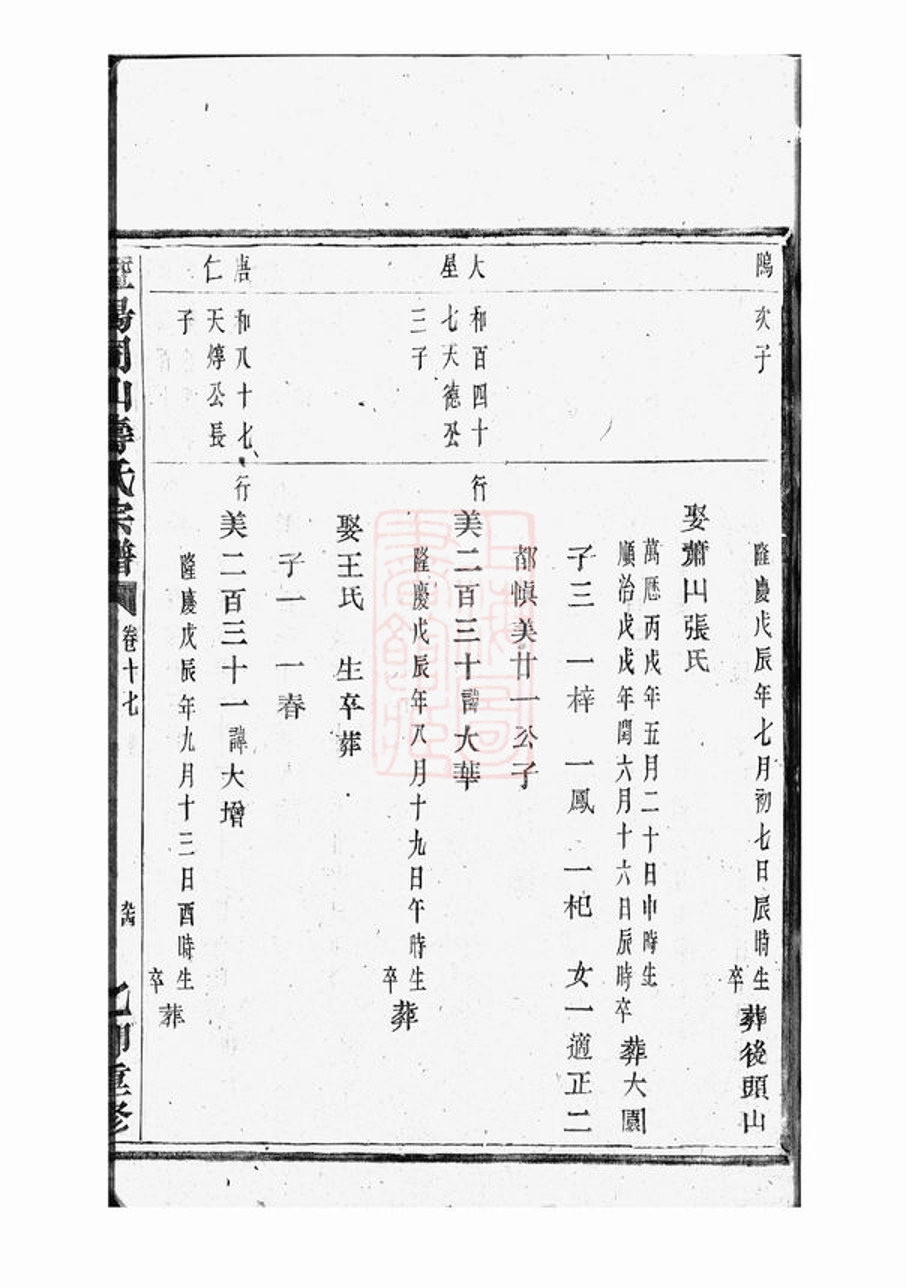 隝
次子
隆慶戊辰年七月初七日辰時生
卒
葬後頭山
娶蕭山張氏
萬厯丙戌年五月二十日申時生
順治戊戌年閏六月十六日辰時卒
葬大園
子三 一梓 一鳳 一杞 女一適正二
都愼美廿一公子
大
星
和百四十
七天德公
三子
行
美二百三十諱大華
隆慶戊辰年八月十九日午時生
卒
葬
娶王氏 生卒葬
子一 一春
唐
仁
和八十七
天焞公長
子
行
美二百三十一諱大增
隆慶戊辰年九月十三日酉時生
卒
葬
暨陽同山壽氏宗譜
卷十七
乙卯重修
上海圖
書館藏